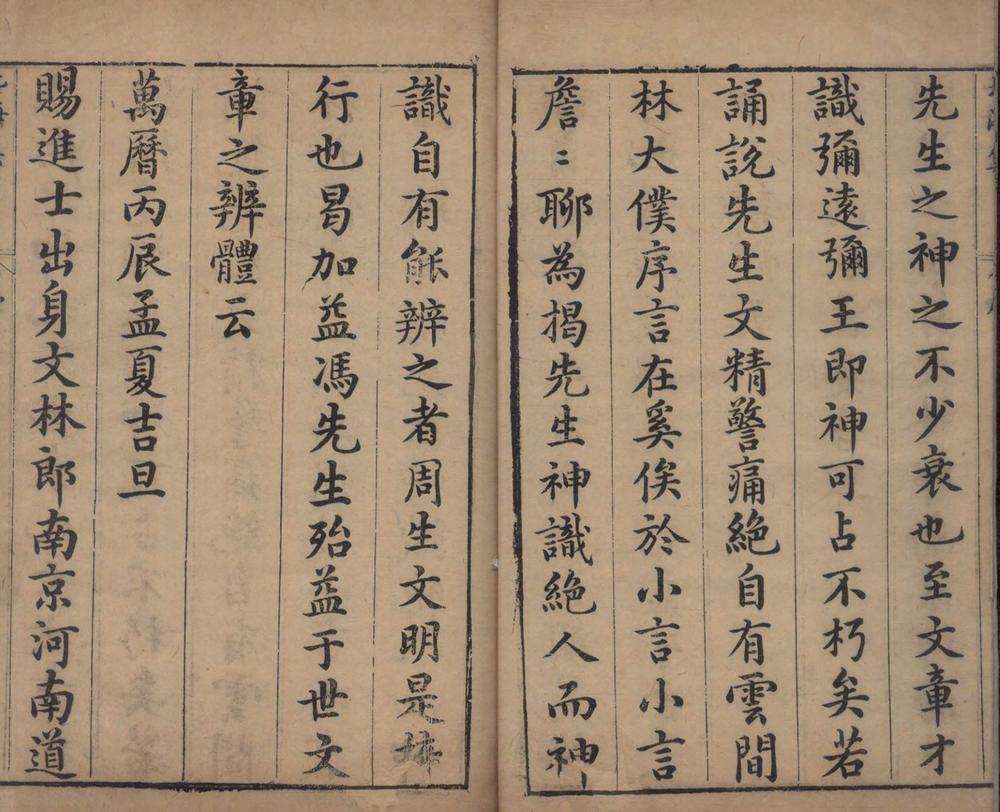 先生之神之不少衰也至文章才
識彌遠彌王即神可占不朽矣若
誦說先生文精警痛絕自有雲間
林大僕序言在奚俟於小言小言
詹〻聊為揭先生神識絕人而神
識自有能辨之者周生文明是
行也曷加益馮先生殆益于世文
章之辨體云
萬曆丙辰孟夏吉旦
賜進士出身文林郎南京河南道